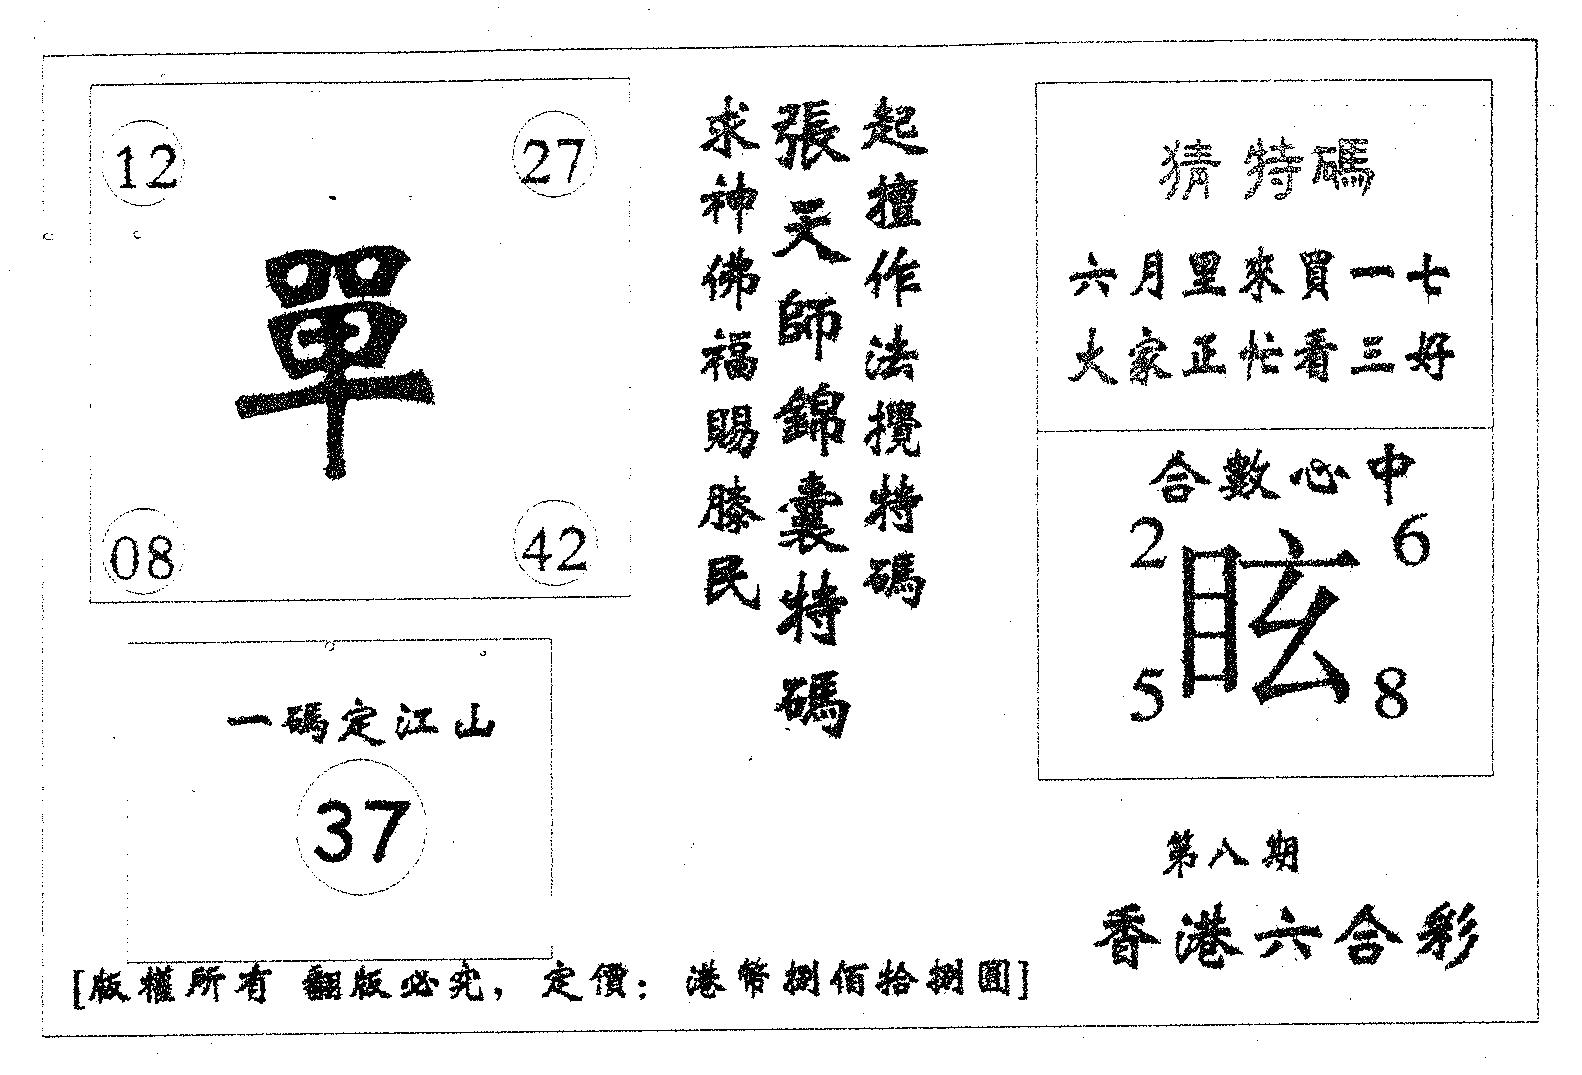 12 27
單
08 42
一碼定江山
37
起擅作法攪特碼
張天師錦囊特碼
求神佛福賜膝民
猜特碼
六月里來買一七
大家正忙看三好
合數心中
2 6
眩
5 8
第八期
香港六合彩
[版權所有 翻版必究，定價：港幣捌佰拾捌圓]